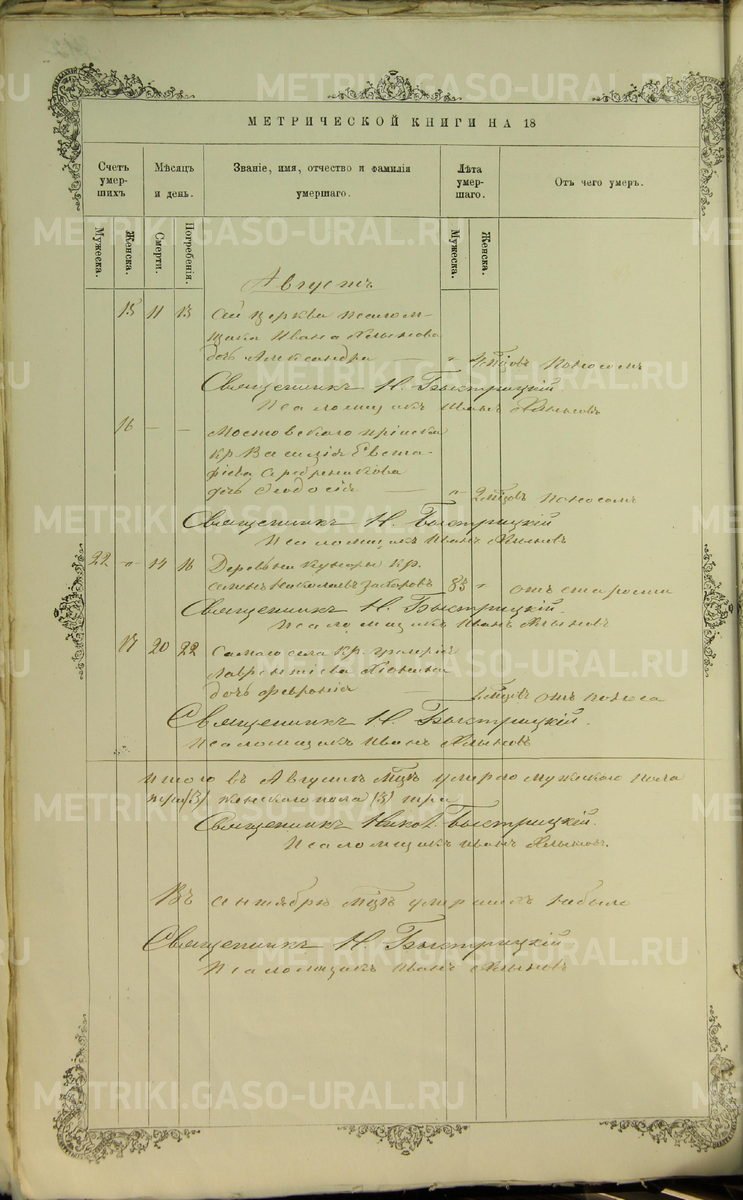 МЕТРИЧЕСКОЙ КНИГИ НА 18
Счетъ умершихъ
Мѣсяцъ и день.
Званіе, имя, отчество и фамилія умершаго.
Лѣта умершаго.
Отъ чего умеръ.
Мужеска.
Женска.
Смерти.
Погребенія.
Мужеска.
Женска.
Августъ
15 11 13 Сей церкви псалом-
щика Ивана
дочь Александра — „ поносомъ
Священникъ Н. Быстрицкій
Псаломщикъ Иванъ
16 — — Мостовскаго пріиска
кр. Василія Евста-
фіева Серебренникова
дочь Ѳеодосія — „ 2 мѣсцовъ поносомъ
Священникъ Н. Быстрицкій
Псаломщикъ Иванъ
22 „ 14 16 Деревни кр.
Семенъ Николаевъ 83 „ отъ старости
Священникъ Н. Быстрицкій.
Псаломщикъ Иванъ
17 20 22 Самаго села кр.
Лаврентіева
дочь Февронія — отъ поноса
Священникъ Н. Быстрицкій.
Псаломщикъ Иванъ
Итого въ Августѣ мцѣ умерло мужескаго пола
женскаго пола (3) три
Священникъ Никол. Быстрицкій.
Псаломщикъ Иванъ
Въ сентябрѣ мцѣ умершихъ небыло
Священникъ Н. Быстрицкій
Псаломщикъ Иванъ
METRIKI.GASO-URAL.RU